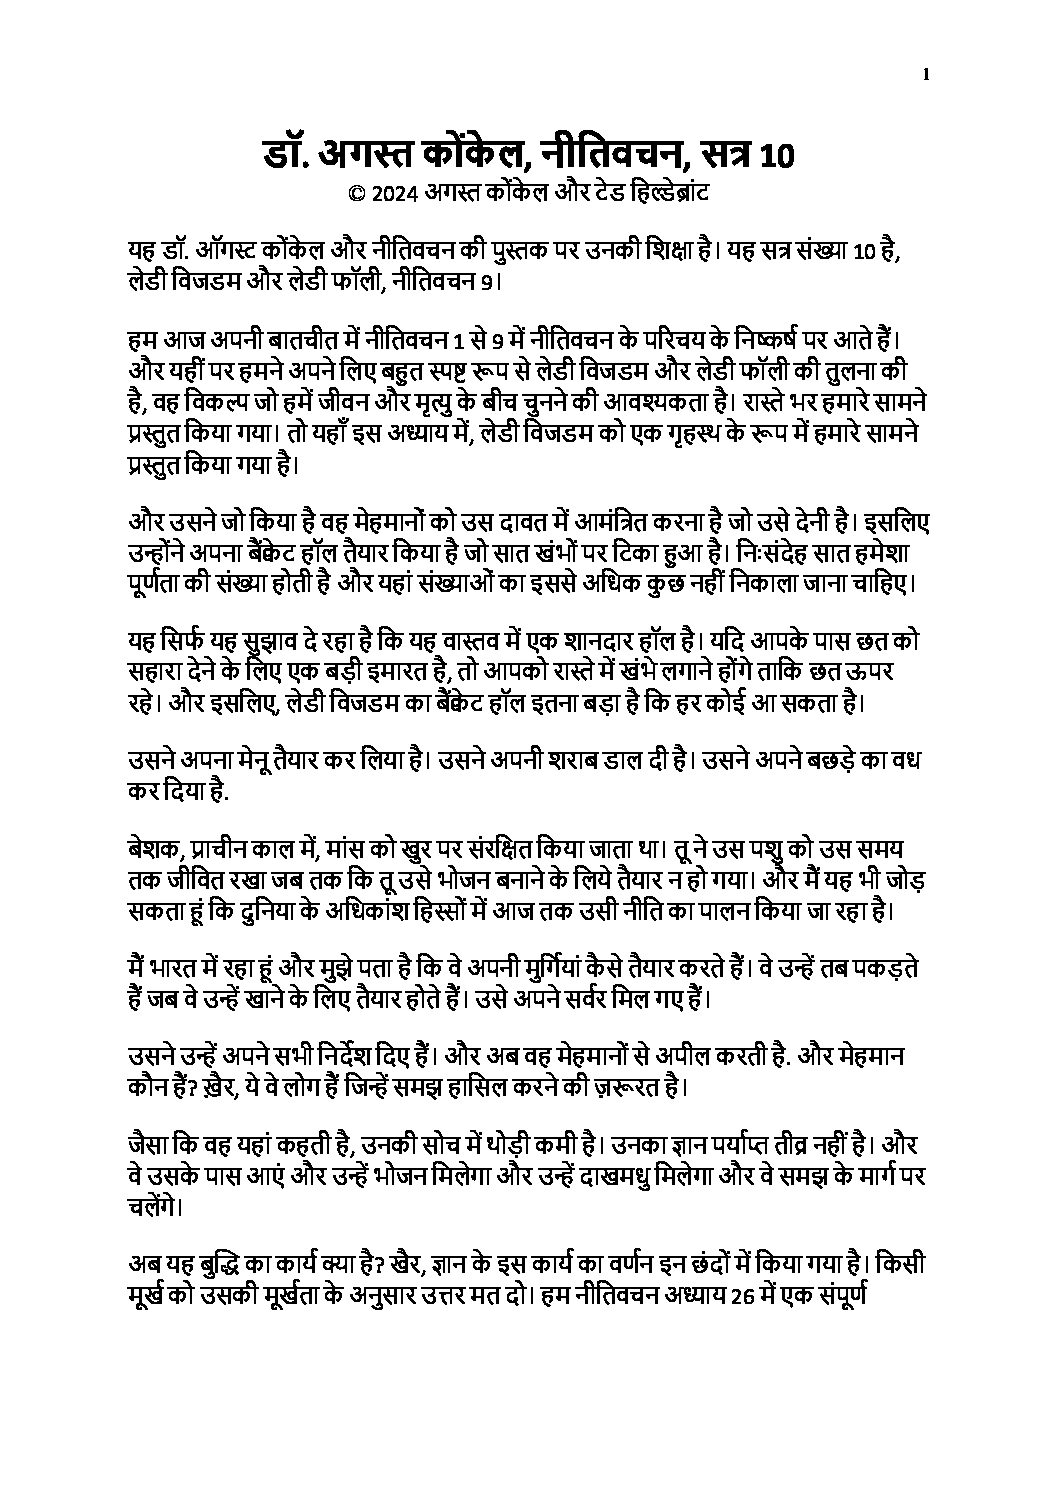 1
डॉ. अगस्त कोंकेल, नीतिवचन, सत्र 10
© 2024 अगस्त कोंकेल और टेड हिल्डेब्रांट
यह डॉ. ऑगस्ट कोंकेल और नीतिवचन की पुस्तक पर उनकी शिक्षा है। यह सत्र संख्या 10 है,
लेडी विजडम और लेडी फॉली, नीतिवचन 9।
हम आज अपनी बातचीत में नीतिवचन 1 से 9 में नीतिवचन के परिचय के निष्कर्ष पर आते हैं।
और यहीं पर हमने अपने लिए बहुत स्पष्ट रूप से लेडी विजडम और लेडी फॉली की तुलना की
है, वह विकल्प जो हमें जीवन और मृत्यु के बीच चुनने की आवश्यकता है। रास्ते भर हमारे सामने
प्रस्तुत किया गया। तो यहाँ इस अध्याय में, लेडी विजडम को एक गृहस्थ के रूप में हमारे सामने
प्रस्तुत किया गया है।
और उसने जो किया है वह मेहमानों को उस दावत में आमंत्रित करना है जो उसे देनी है। इसलिए
उन्होंने अपना बैंक्वेट हॉल तैयार किया है जो सात खंभों पर टिका हुआ है। निःसंदेह सात हमेशा
पूर्णता की संख्या होती है और यहां संख्याओं का इससे अधिक कुछ नहीं निकाला जाना चाहिए।
यह सिर्फ यह सुझाव दे रहा है कि यह वास्तव में एक शानदार हॉल है। यदि आपके पास छत को
सहारा देने के लिए एक बड़ी इमारत है, तो आपको रास्ते में खंभे लगाने होंगे ताकि छत ऊपर
रहे। और इसलिए, लेडी विजडम का बैंक्वेट हॉल इतना बड़ा है कि हर कोई आ सकता है।
उसने अपना मेनू तैयार कर लिया है। उसने अपनी शराब डाल दी है। उसने अपने बछड़े का वध
कर दिया है.
बेशक, प्राचीन काल में, मांस को खुर पर संरक्षित किया जाता था। तू ने उस पशु को उस समय
तक जीवित रखा जब तक कि तू उसे भोजन बनाने के लिये तैयार न हो गया। और मैं यह भी जोड़
सकता हूं कि दुनिया के अधिकांश हिस्सों में आज तक उसी नीति का पालन किया जा रहा है।
मैं भारत में रहा हूं और मुझे पता है कि वे अपनी मुर्गियां कैसे तैयार करते हैं। वे उन्हें तब पकड़ते
हैं जब वे उन्हें खाने के लिए तैयार होते हैं। उसे अपने सर्वर मिल गए हैं।
उसने उन्हें अपने सभी निर्देश दिए हैं। और अब वह मेहमानों से अपील करती है. और मेहमान
कौन हैं? ख़ैर, ये वे लोग हैं जिन्हें समझ हासिल करने की ज़रूरत है।
जैसा कि वह यहां कहती है, उनकी सोच में थोड़ी कमी है। उनका ज्ञान पर्याप्त तीव्र नहीं है। और
वे उसके पास आएं और उन्हें भोजन मिलेगा और उन्हें दाखमधु मिलेगा और वे समझ के मार्ग पर
चलेंगे।
अब यह बुद्धि का कार्य क्या है? खैर, ज्ञान के इस कार्य का वर्णन इन छंदों में किया गया है। किसी
मूर्ख को उसकी मूर्खता के अनुसार उत्तर मत दो। हम नीतिवचन अध्याय 26 में एक संपूर्ण